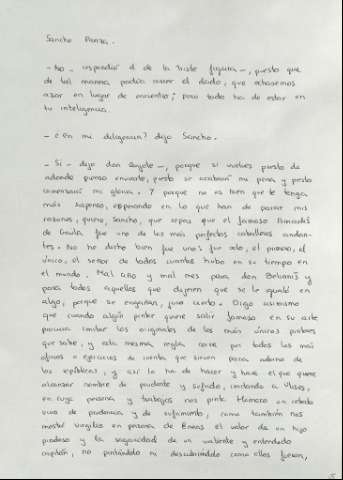 Sancho Panza.
- No - respondió el de la triste figura -, puesto que
de tal manera podría correr el dado, que echásemos
azar en lugar de encuentro; pero todo ha de estar en
tu inteligencia.
- ¿en mi dilegencia? dijo Sancho.
- Si - dijo don Quijote -, porque si vuelves presto de
adonde pienso enviarte, presto se acabará mi pena y presto
comenzará mi gloria. Y porque no es bien que te tenga
más suspenso, esperando en lo que han de parar mis
razones, quiero, Sancho, que sepas que el famoso Amadís
de Gaula fue uno de los más perfectos caballeros andan-
tes. No he dicho bien fue uno: fue solo, el primero, el
único, el señor de todos cuantos hubo en su tiempo en
el mundo. Mal año y mal mes para don Belianís y
para todos aquellos que dijeren que se le igualó en
algo, porque se engañan, juro cierto. Digo asimismo
que cuando algún pintor quiere salir famoso en su arte
procura imitar los originales de los más únicos pintores
que sabe, y esta mesma regla corre por todos los más
oficios o ejercicios de cuenta que sirven para adorno de
las repúblicas, y así lo ha de hacer y hace el que quiere
alcanzar nombre de prudente y sufrido, imitando a Ulises,
en cuya persona y trabajos nos pinta Homero un retrato
vivo de prudencia y de sufrimiento, como también nos
mostró Virgilio en persona de Eneas el valor de un hijo
piadoso y la sagacidad de un valiente y entendido
capitán, no pintándolo ni descubriéndolo como ellos fueron,